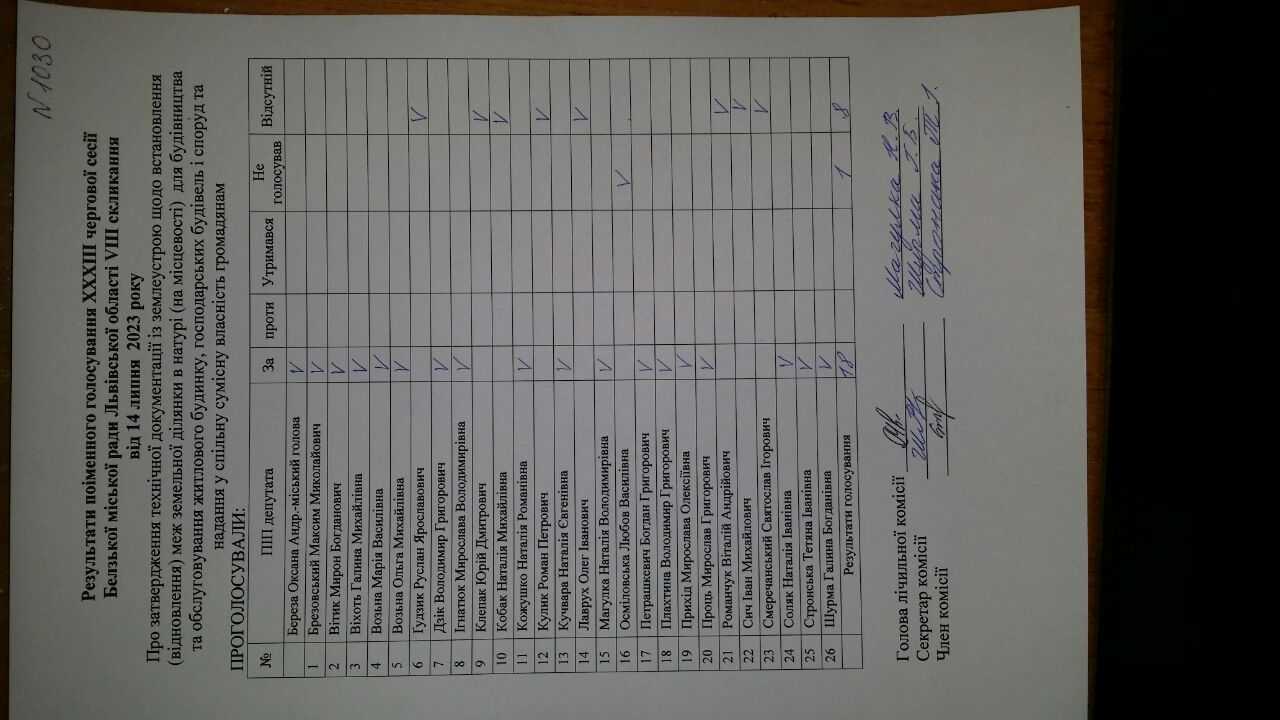 N 1030
Результати поіменного голосування XXXIII чергової сесії
Белзької міської ради Львівської області VIII скликання
від 14 липня 2023 року
Про затвердження технічної документації із землеустрою щодо встановлення
(відновлення) меж земельної ділянки в натурі (на місцевості) для будівництва
та обслуговування житлового будинку, господарських будівель і споруд та
надання у спільну сумісну власність громадянам
ПРОГОЛОСУВАЛИ:
№ ПІП депутата За проти Утримався Не голосував Відсутній
Береза Оксана Андр.-міський голова V
1 Брезовський Максим Миколайович V
2 Вітик Мирон Богданович V
3 Віхоть Галина Михайлівна V
4 Возьна Марія Василівна V
5 Возьна Ольга Михайлівна V
6 Гудзик Руслан Ярославович V
7 Дзік Володимир Григорович V
8 Ігнатюк Мирослава Володимирівна V
9 Клепак Юрій Дмитрович V
10 Кобак Наталія Михайлівна V
11 Кожушко Наталія Романівна V
12 Кулик Роман Петрович V
13 Кучвара Наталія Євгенівна V
14 Лаврух Олег Іванович V
15 Магулка Наталія Володимирівна V
16 Осміловська Любов Василівна V
17 Петрашкевич Богдан Григорович V
18 Плахтина Володимир Григорович V
19 Прихід Мирослава Олексіївна V
20 Проць Мирослав Григорович V
21 Романчук Віталій Андрійович V
22 Сич Іван Михайлович V
23 Смеречанський Святослав Ігорович V
24 Соляк Наталія Іванівна V
25 Стронська Тетяна Іванівна V
26 Шурма Галина Богданівна V
Результати голосування 18 1 8
Голова лічильної комісії Магулка Н.В
Секретар комісії Шурма Г.Б
Член комісії Стронська Т.І.